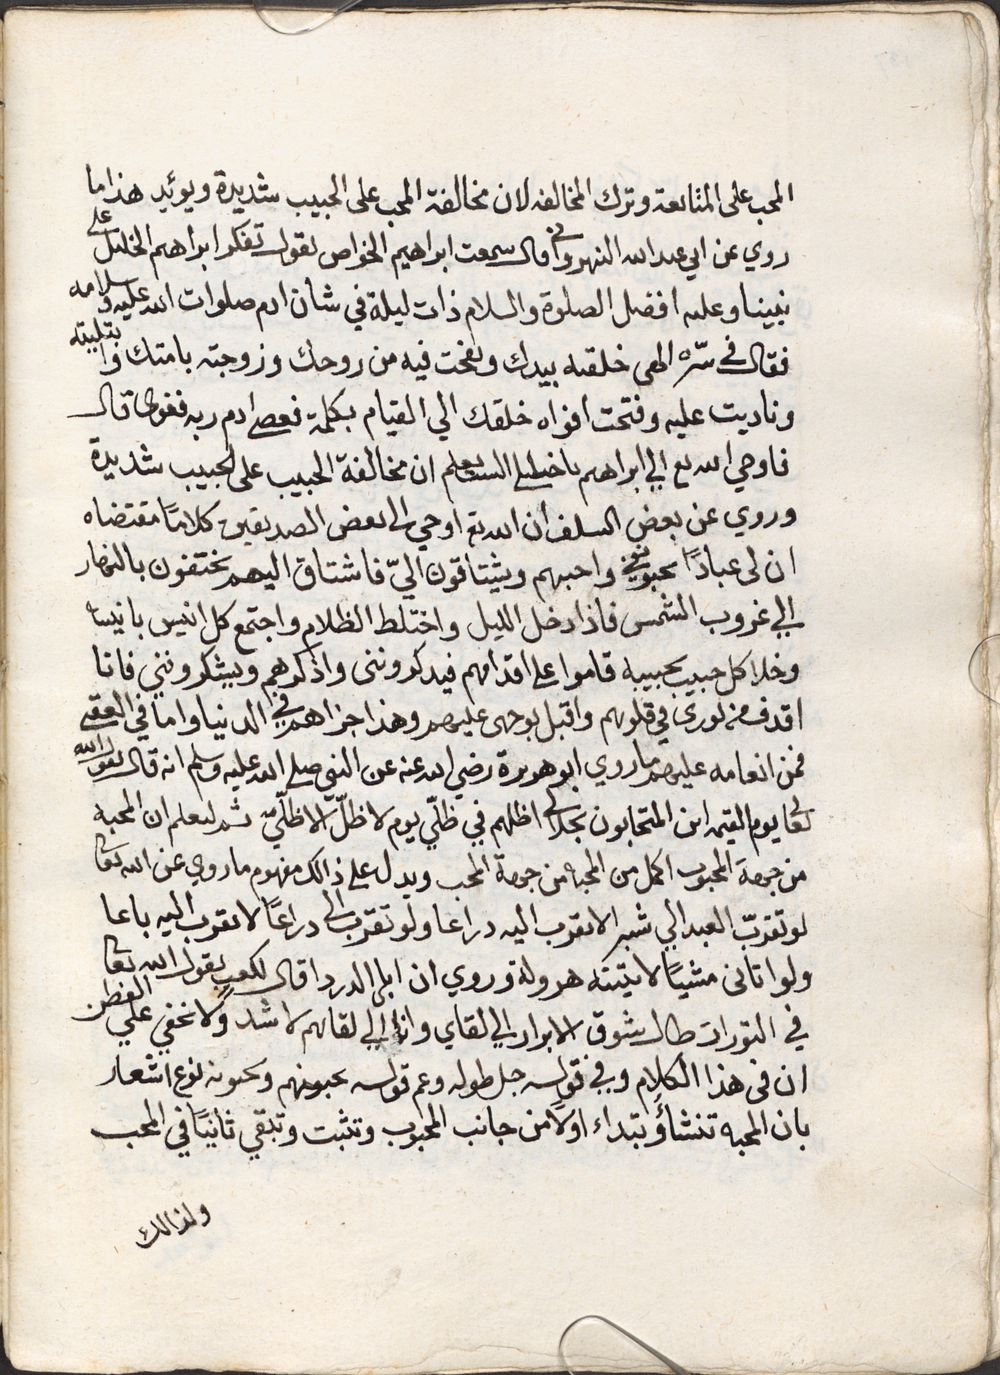 المحب على المتابعة وترك المخالفه لان مخالفة المحب على الحبيب شديدة ويوئيد هذا ما
روي عن ابي عبد الله النهرواني قال سمعت ابراهيم الخواص يقول تفكر ابراهيم الخليل على
نبينا وعليه افضل الصلوة والسلام ذات ليلة في شان ادم صلوات الله عليه وسلامه
فقال في سرّه الهى خلقته بيدك ونفخت فيه من روحك وزوجته بامتك
وناديت عليه وفتحت افواه خلقك الي القيام بكلمة فعصى ادم ربه فغوى قال
فاوحي الله تع الي ابراهيم يا خليلي الست تعلم ان مخالفة الحبيب على الحبيب شديدة
وروي عن بعض السلف ان الله تع اوحي الى بعض الصديقين كلامًا مقتضاه
ان لى عبادًا يحبونني واحبهم ويشتاقون اليّ فاشتاق اليهم يختفون بالنهار
الي غروب الشمس فاذا دخل الليل واختلط الظلام واجتمع كل انيس بانيسه
وخلا كل حبيب بحبيبه قاموا على اقدامهم فيذكرونني واذكرهم ويشكرونني فانا
اقذف من نورى في قلوبهم واقبل بوجهى عليهم وهذا جزاهم في الدنيا واما في العقبي
فمن انعامه عليهم ما روي ابو هريرة رضي الله عنه عن النبي صلى الله عليه وسلم انه قال يقول الله
تعا يوم القيمه اين المتحابون بجلالي اظلهم في ظلّي يوم لا ظلّ الا ظلّيّ ثم ليعلم ان المحبة
من جهة المحبوب اكمل من المحبة من جهة المحب ويدل على ذالك مفهوم ما روي عن الله تعا
لو تقربّ العبد الي شبر الا تقرب اليه دراعا ولو تقرب الى دراعًا لا تقرب اليه باعا
ولو اتانى مشيًا لاتيته هرولة وروي ان ابا الدردا قال لكعب يقول الله تعا
في التورات طال شوق الابرار الي لقاي وانا الي لقائهم لاشد ولا يخفي علي الفطن
ان فى هذا الكلام وفي قوله جل طوله وعم قوله يحبهم ويحبونه نوع اشعار
بان المحبه تنشأ وتبتداء اولًا من جانب المحبوب وتثبت وتبقي ثانيًا في المحب
ولذالك